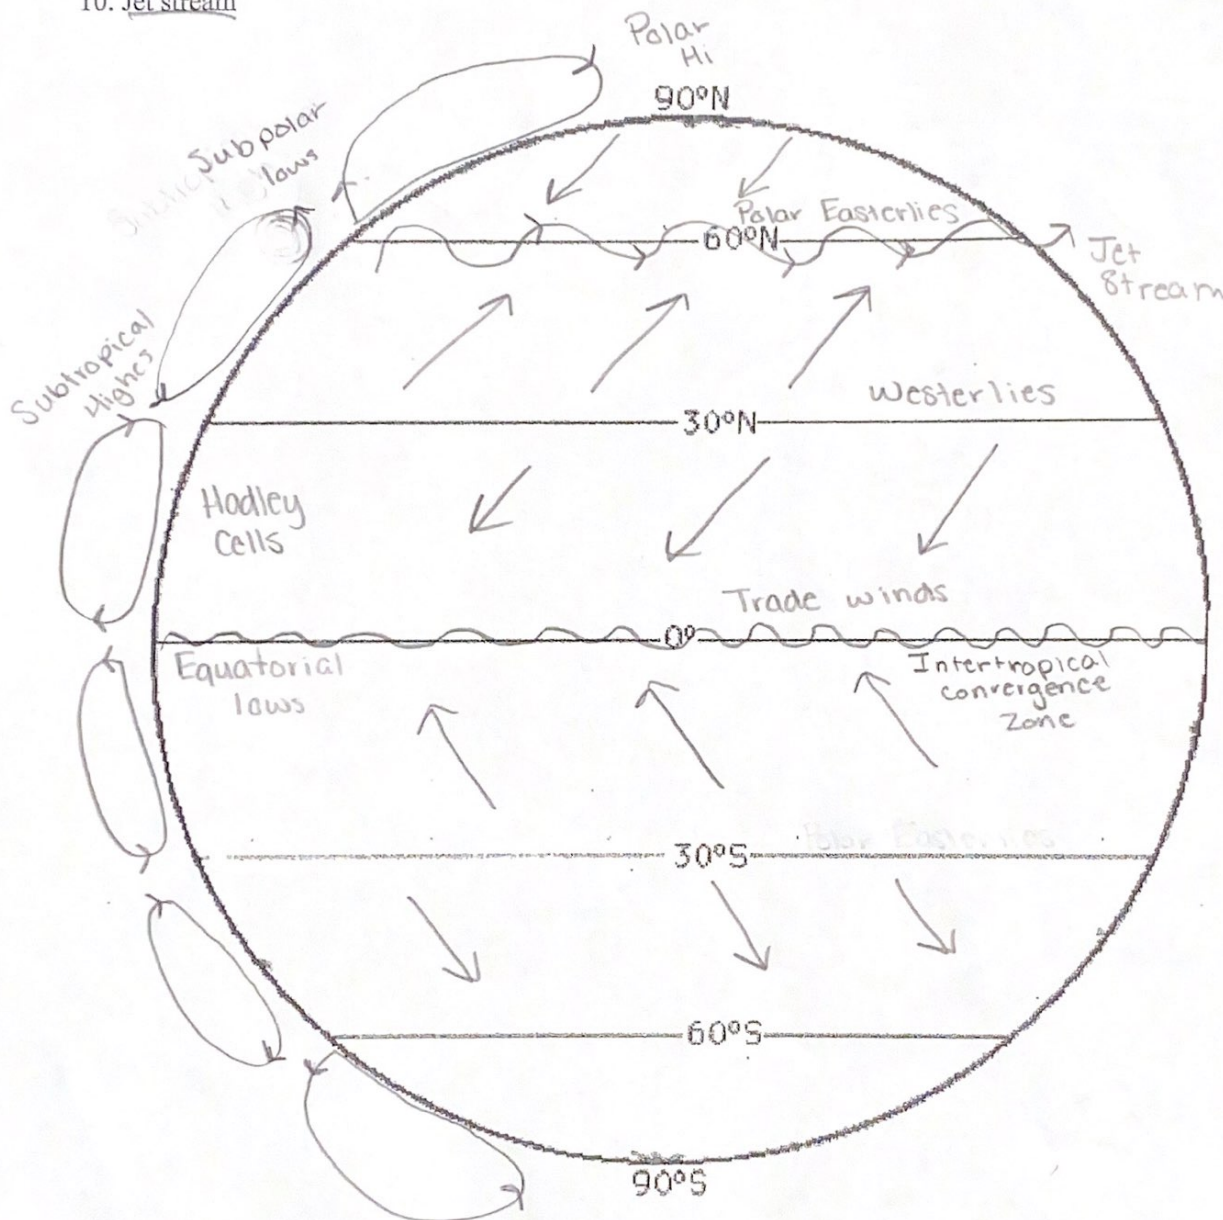 10. Jet stream
Polar
Hi
90°N
Subpolar
lows
Polar Easterlies
60°N
Jet
Stream
Subtropical
Highes
Westerlies
30°N
Hadley
Cells
Trade winds
0°
Equatorial
lows
Intertropical
convergence
Zone
Polar Easterlies
30°S
60°S
90°S